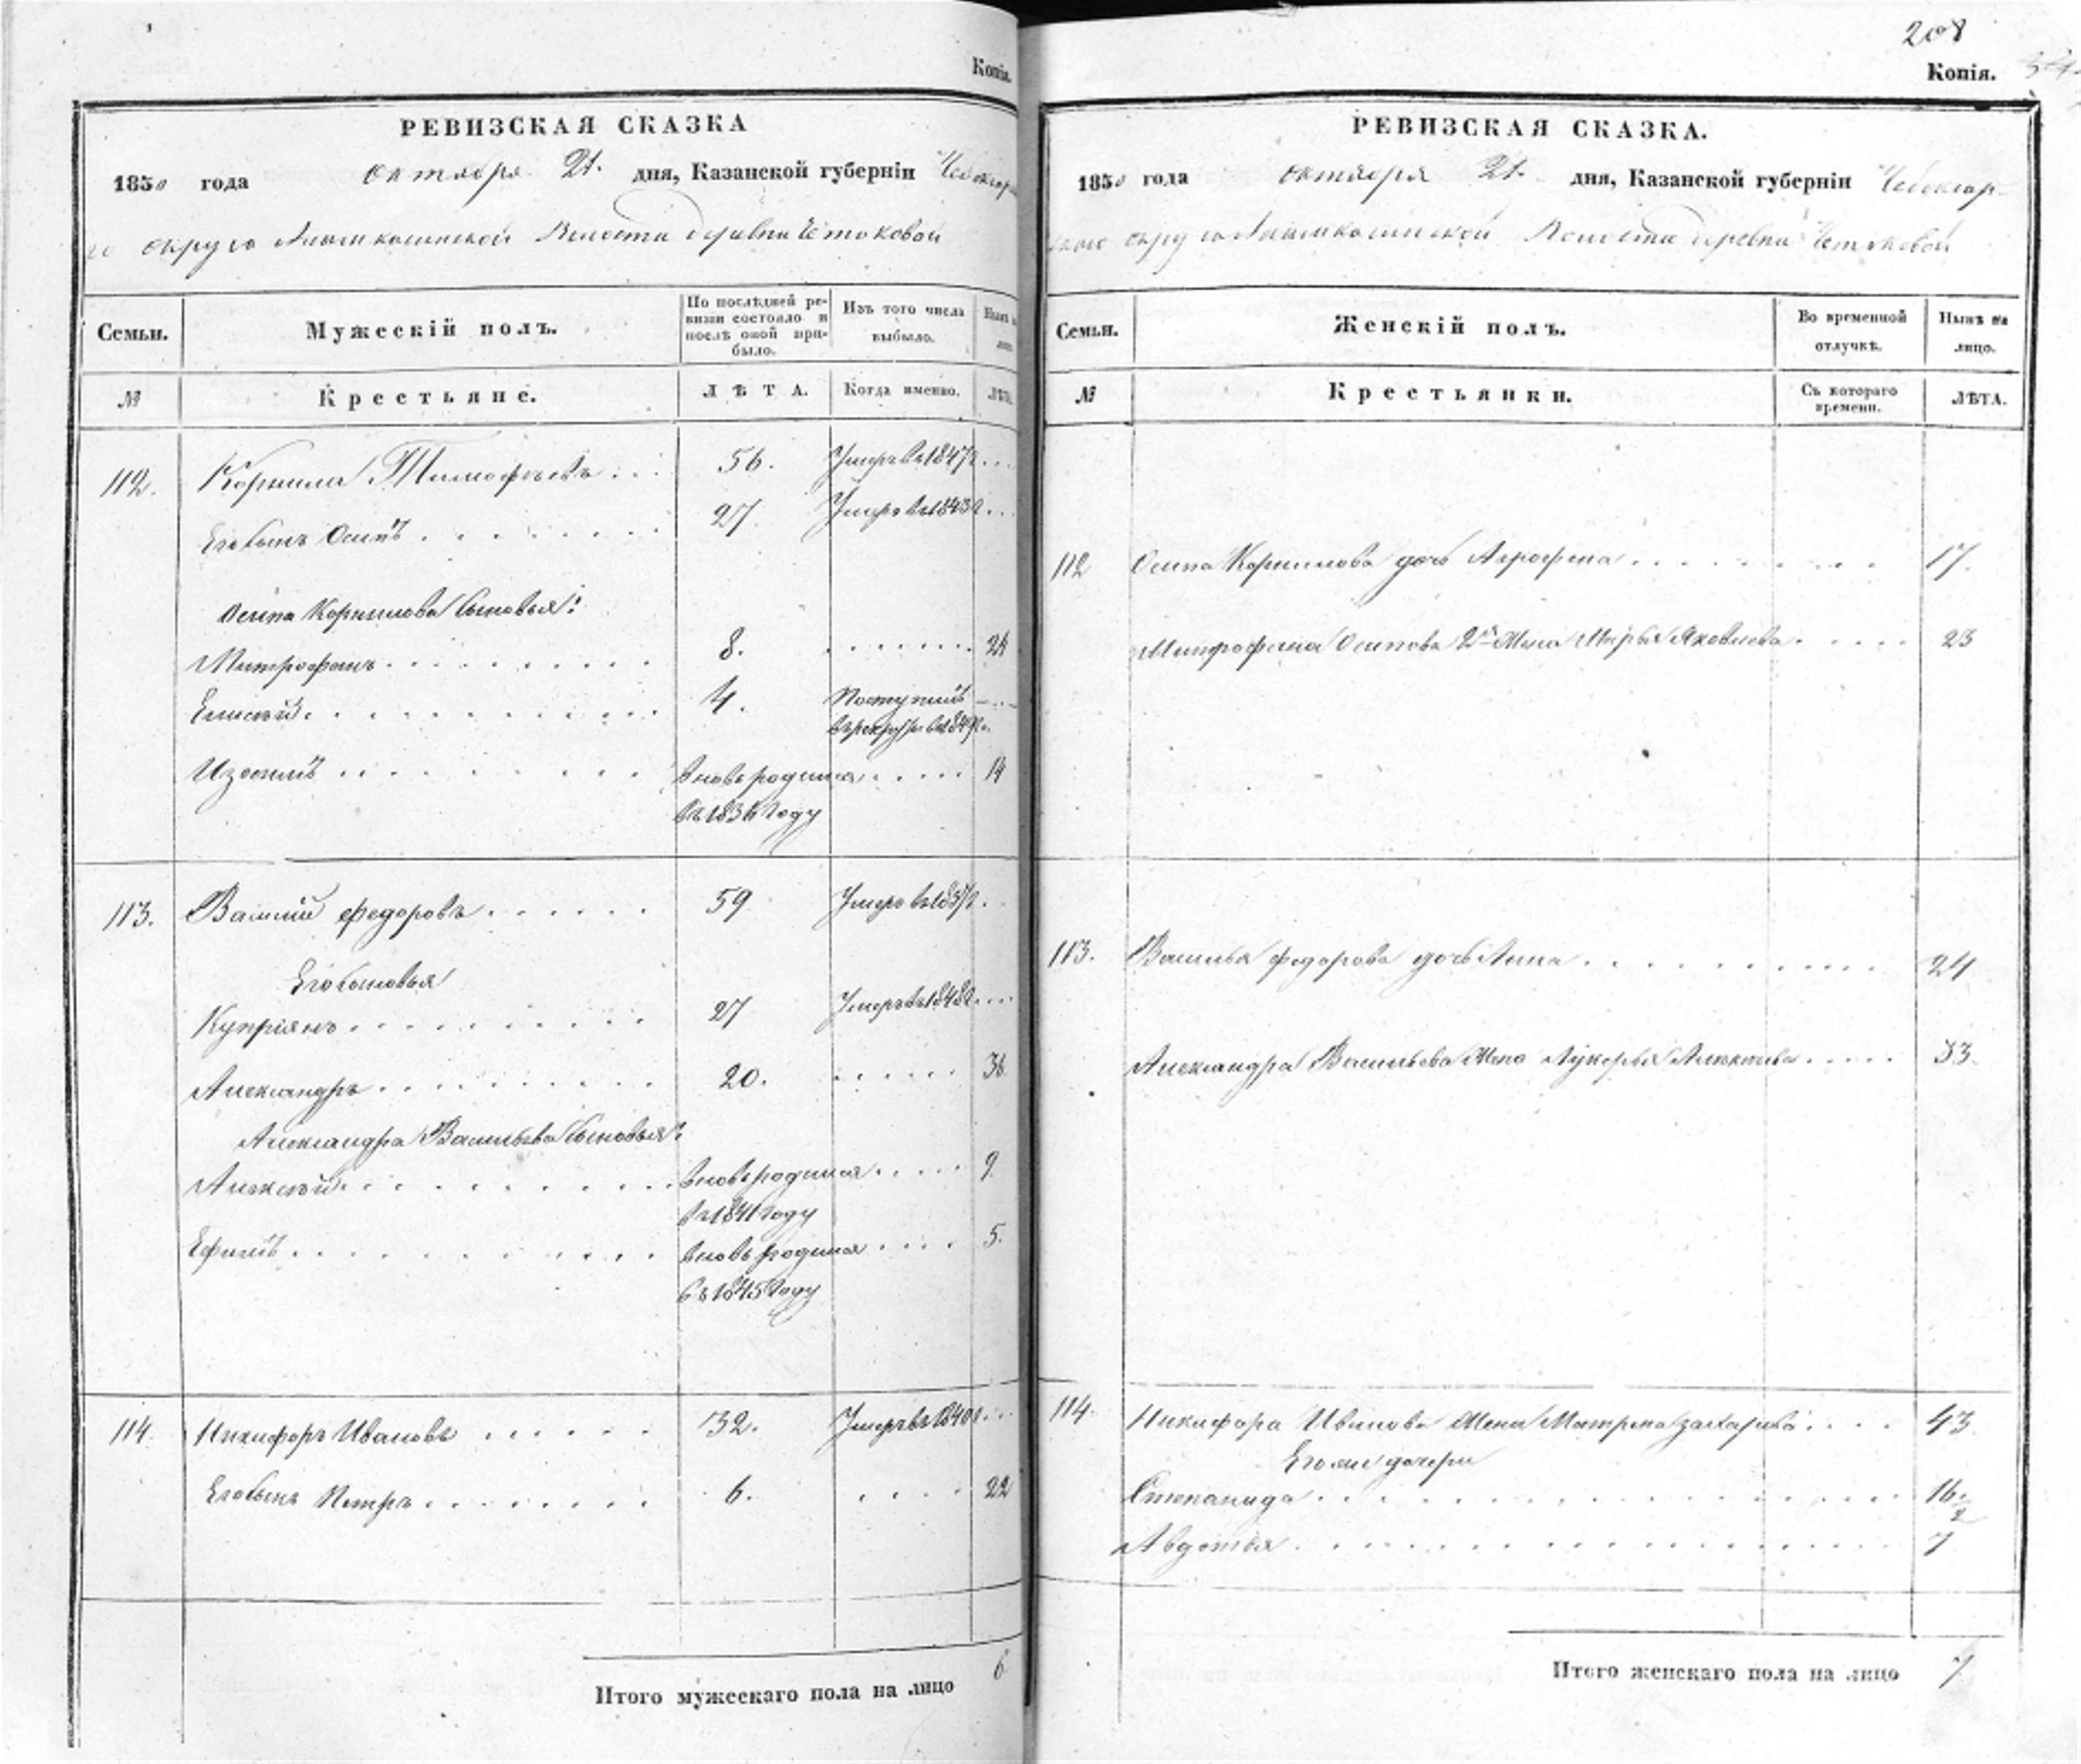 Копія.
РЕВИЗСКАЯ СКАЗКА
1850 года октября 21. дня, Казанской губерніи Чебоксар
го округа волости деревни
Семьи.
Мужескій полъ.
По послѣдней ре-
визіи состояло и
послѣ оной при-
было.
Изъ того числа
выбыло.
Нынѣ
№
Крестьяне.
ЛѢТА.
Когда именно.
ЛѢТА.
112. Корнила Тимофѣевъ 56. Умеръ въ 1847 г.
Его сынъ Осипъ 27. Умеръ въ 1843 г.
Осипа Корнилова сыновья:
Митрофанъ 8. 24
Елисѣй 4. Поступилъ
въ рекруты въ
Изосимъ вновь родился 14
въ 1836 году
113. Василій Федоровъ 59 Умеръ въ 1837 г.
Его сыновья
Купріянъ 27 Умеръ въ 1848 г.
Александръ 20. 36
Александра Васильева сыновья:
Алексѣй вновь родился 9
въ 1841 году
Ефимъ вновь родился 5.
въ 1845 году
114. Никифоръ Ивановъ 32. Умеръ въ 1840 г.
Его сынъ Петръ 6. 22
Итого мужескаго пола на лицо 6
208
Копія.
РЕВИЗСКАЯ СКАЗКА.
1850 года октября 21. дня, Казанской губерніи Чебоксар-
скаго округа волости деревни
Семьи.
Женскій полъ.
Во временной
отлучкѣ.
Нынѣ на
лицо.
№
Крестьянки.
Съ котораго
времени.
ЛѢТА.
112 Осипа Корнилова дочь Агрофена 17.
Митрофана Осипова 2я жена Марья Яковлева 23
113. Василья Федорова дочь Анна 24
Александра Васильева жена Лукерья Алексѣева 33.
114. Никифора Иванова жена Матрена Захарова 43
Его же дочери
Степанида 16 1/2
Авдотья 7
Итого женскаго пола на лицо 7